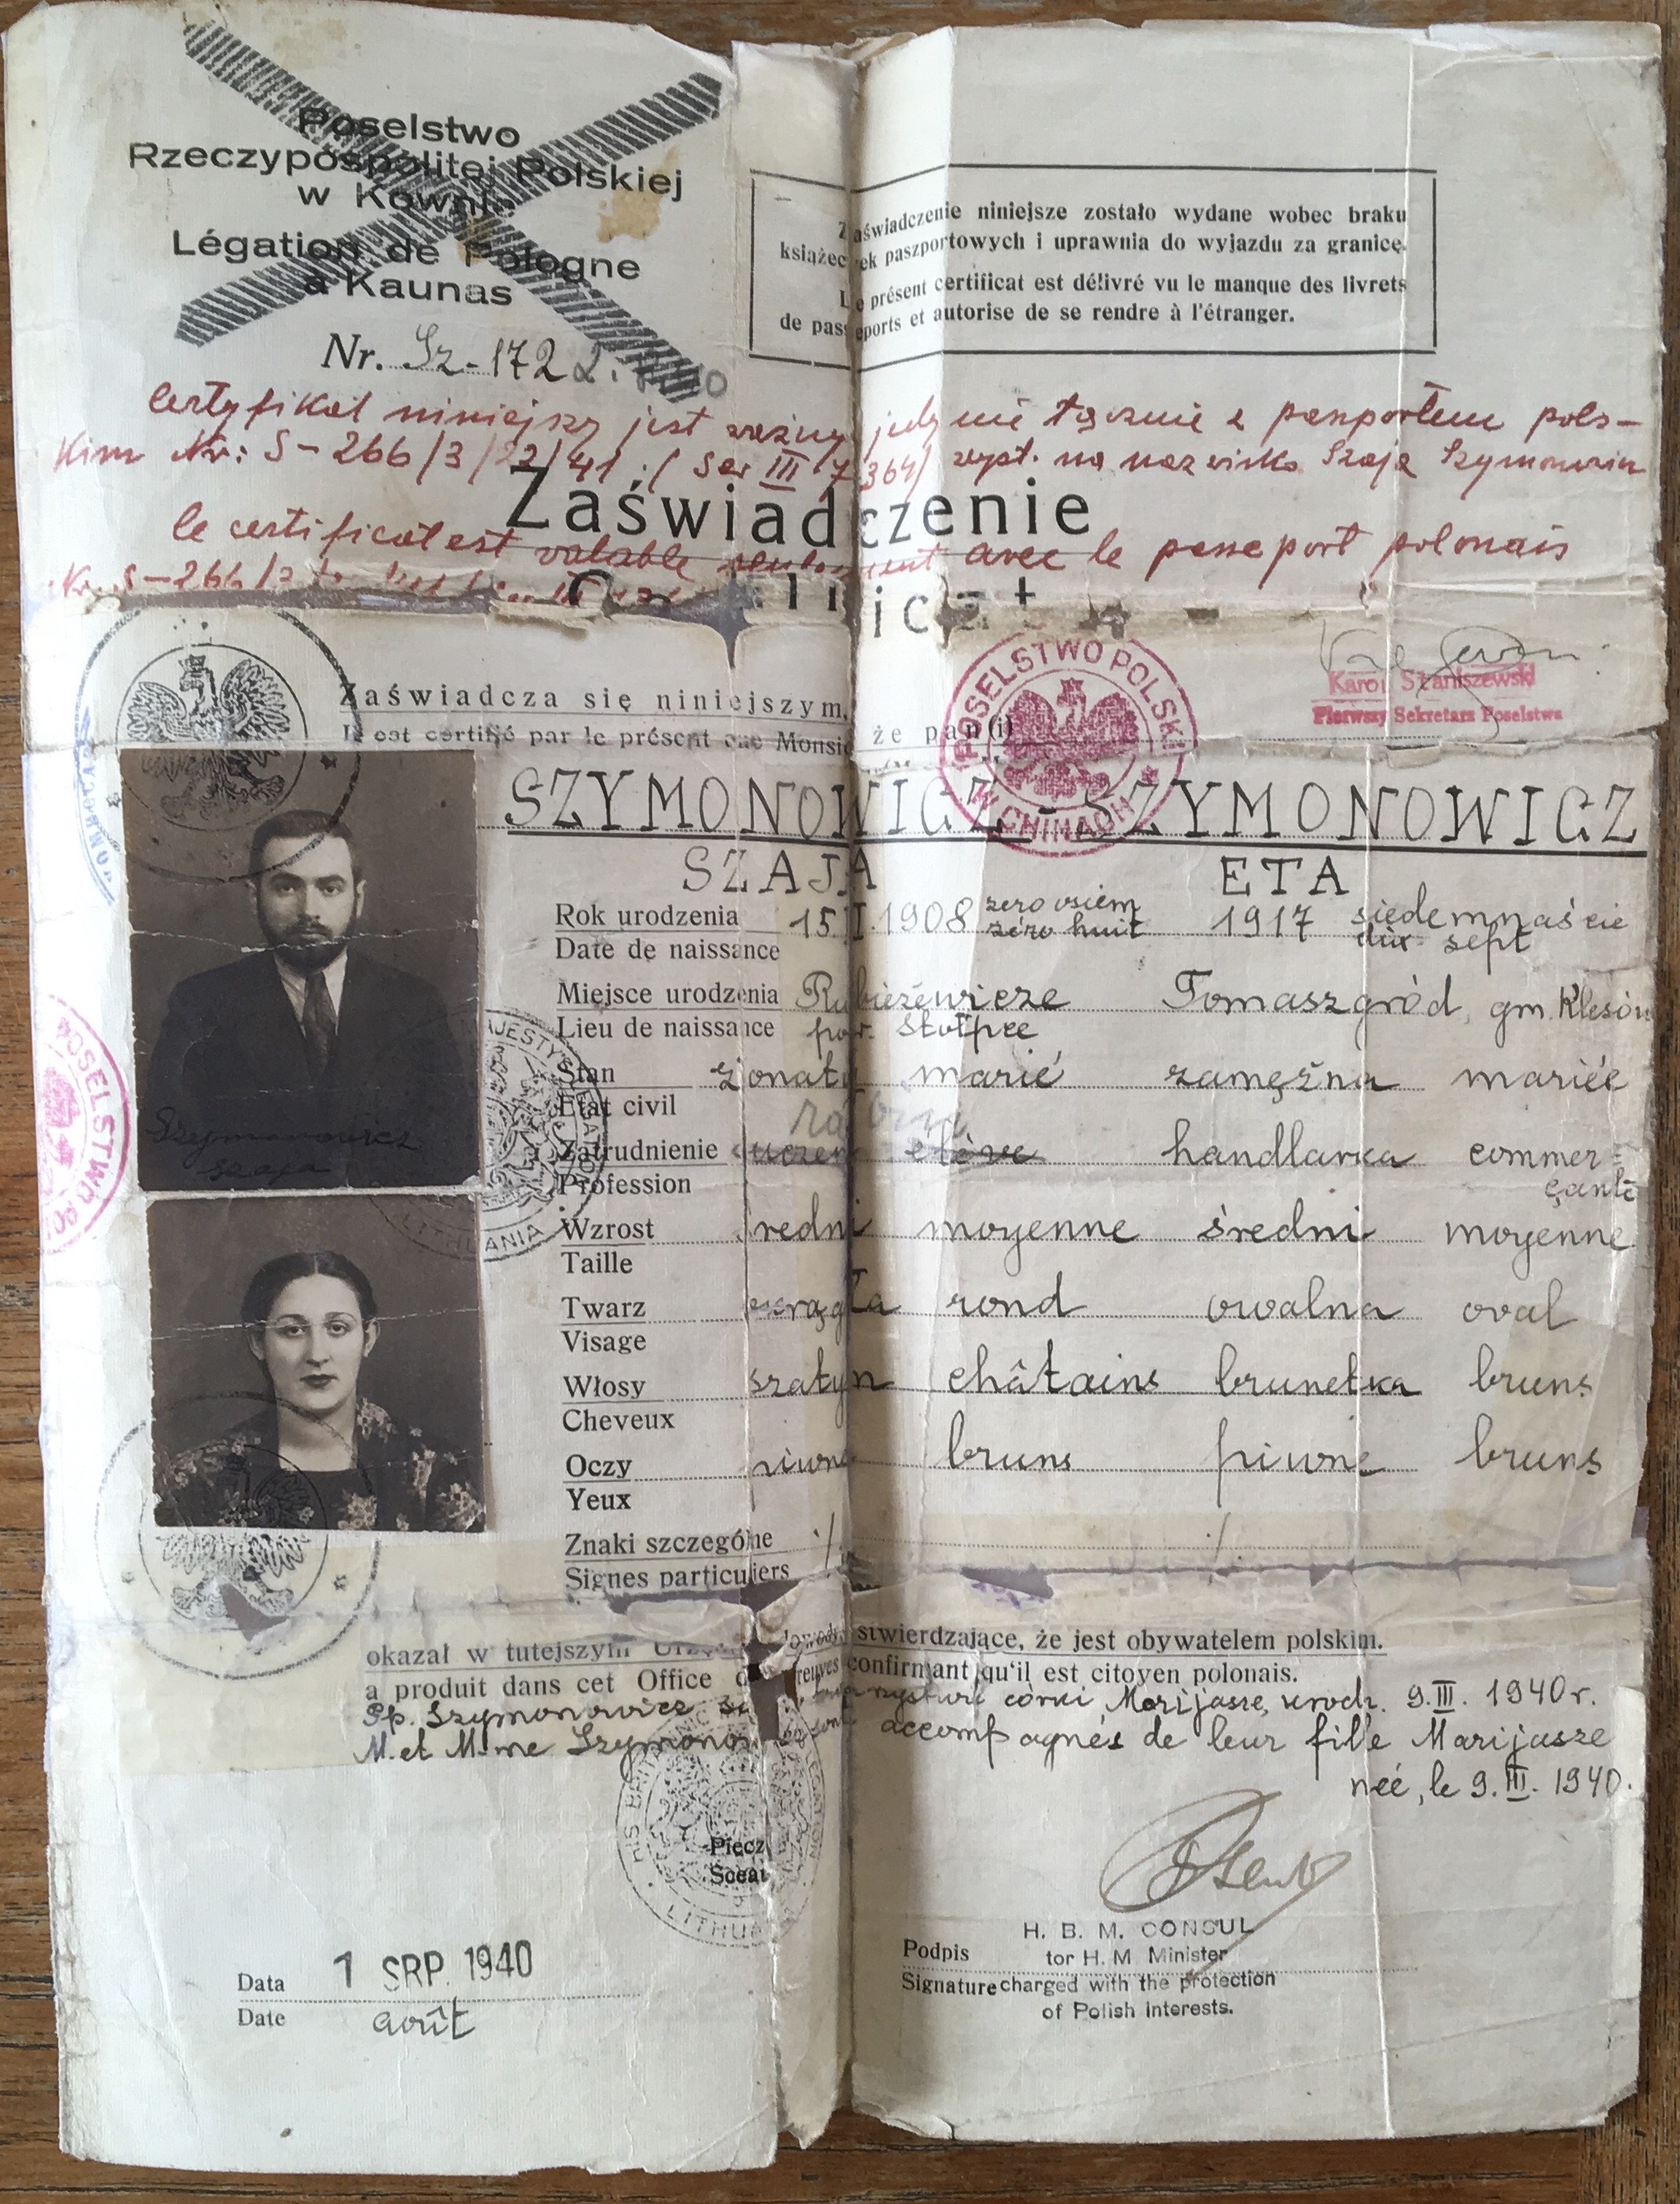 Poselstwo
Rzeczypospolitej Polskiej
w Kownie
Légation de Pologne
à Kaunas
Nr. Sz-172
Zaświadczenie niniejsze zostało wydane wobec braku
książeczek paszportowych i uprawnia do wyjazdu za granicę.
Le présent certificat est délivré vu le manque des livrets
de passeports et autorise de se rendre à l'étranger.
Certyfikat niniejszy jest ważny jedynie łącznie z paszportem pols-
kim Nr: S-266/3/22/41 / Ser III 7364/ wyst. na nazwisko Szaja Szymonowicz
Zaświadczenie
le certificat est valable seulement avec le passeport polonais
Nr. S-266/3
Certificat
POSELSTWO POLSKIE
W CHINACH
Karol Staniszewski
Pierwszy Sekretarz Poselstwa
Zaświadcza się niniejszym, że pan(i)
Il est certifié par le présent que Monsie
SZYMONOWICZ - SZYMONOWICZ
SZAJA ETA
Rok urodzenia 15 I. 1908 zero osiem 1917 siedemnaście
Date de naissance zéro huit dix sept
Miejsce urodzenia Rubieżewicze Tomaszgród, gm. Klesów
Lieu de naissance pow. Stołpce
Stan żonaty marié zamężna mariée
Etat civil
rabin
Zatrudnienie uczeń élève handlarka commer=
Profession çante
Wzrost średni moyenne średni moyenne
Taille
Twarz okrągła rond owalna oval
Visage
Włosy szatyn châtains brunetka bruns
Cheveux
Oczy piwne bruns piwne bruns
Yeux
Znaki szczególne ./. ./.
Signes particuliers
Szymonowicz
Szaja
POSELSTWO PO
LITHUANIA
okazał w tutejszym Urzę dowody stwierdzające, że jest obywatelem polskim.
a produit dans cet Office des preuves confirmant qu'il est citoyen polonais.
Pp. Szymonowicz córki Marijasze, urodz. 9.III. 1940 r.
M. et M-me Szymono accompagnés de leur fille Marijasze
née, le 9.III. 1940.
HIS BRITANNIC LEGATION
LITHUA
Piecz
Sceau
H. B. M. CONSUL
Podpis for H. M. Minister
Signature charged with the protection
of Polish Interests.
Data 1 SRP. 1940
Date août